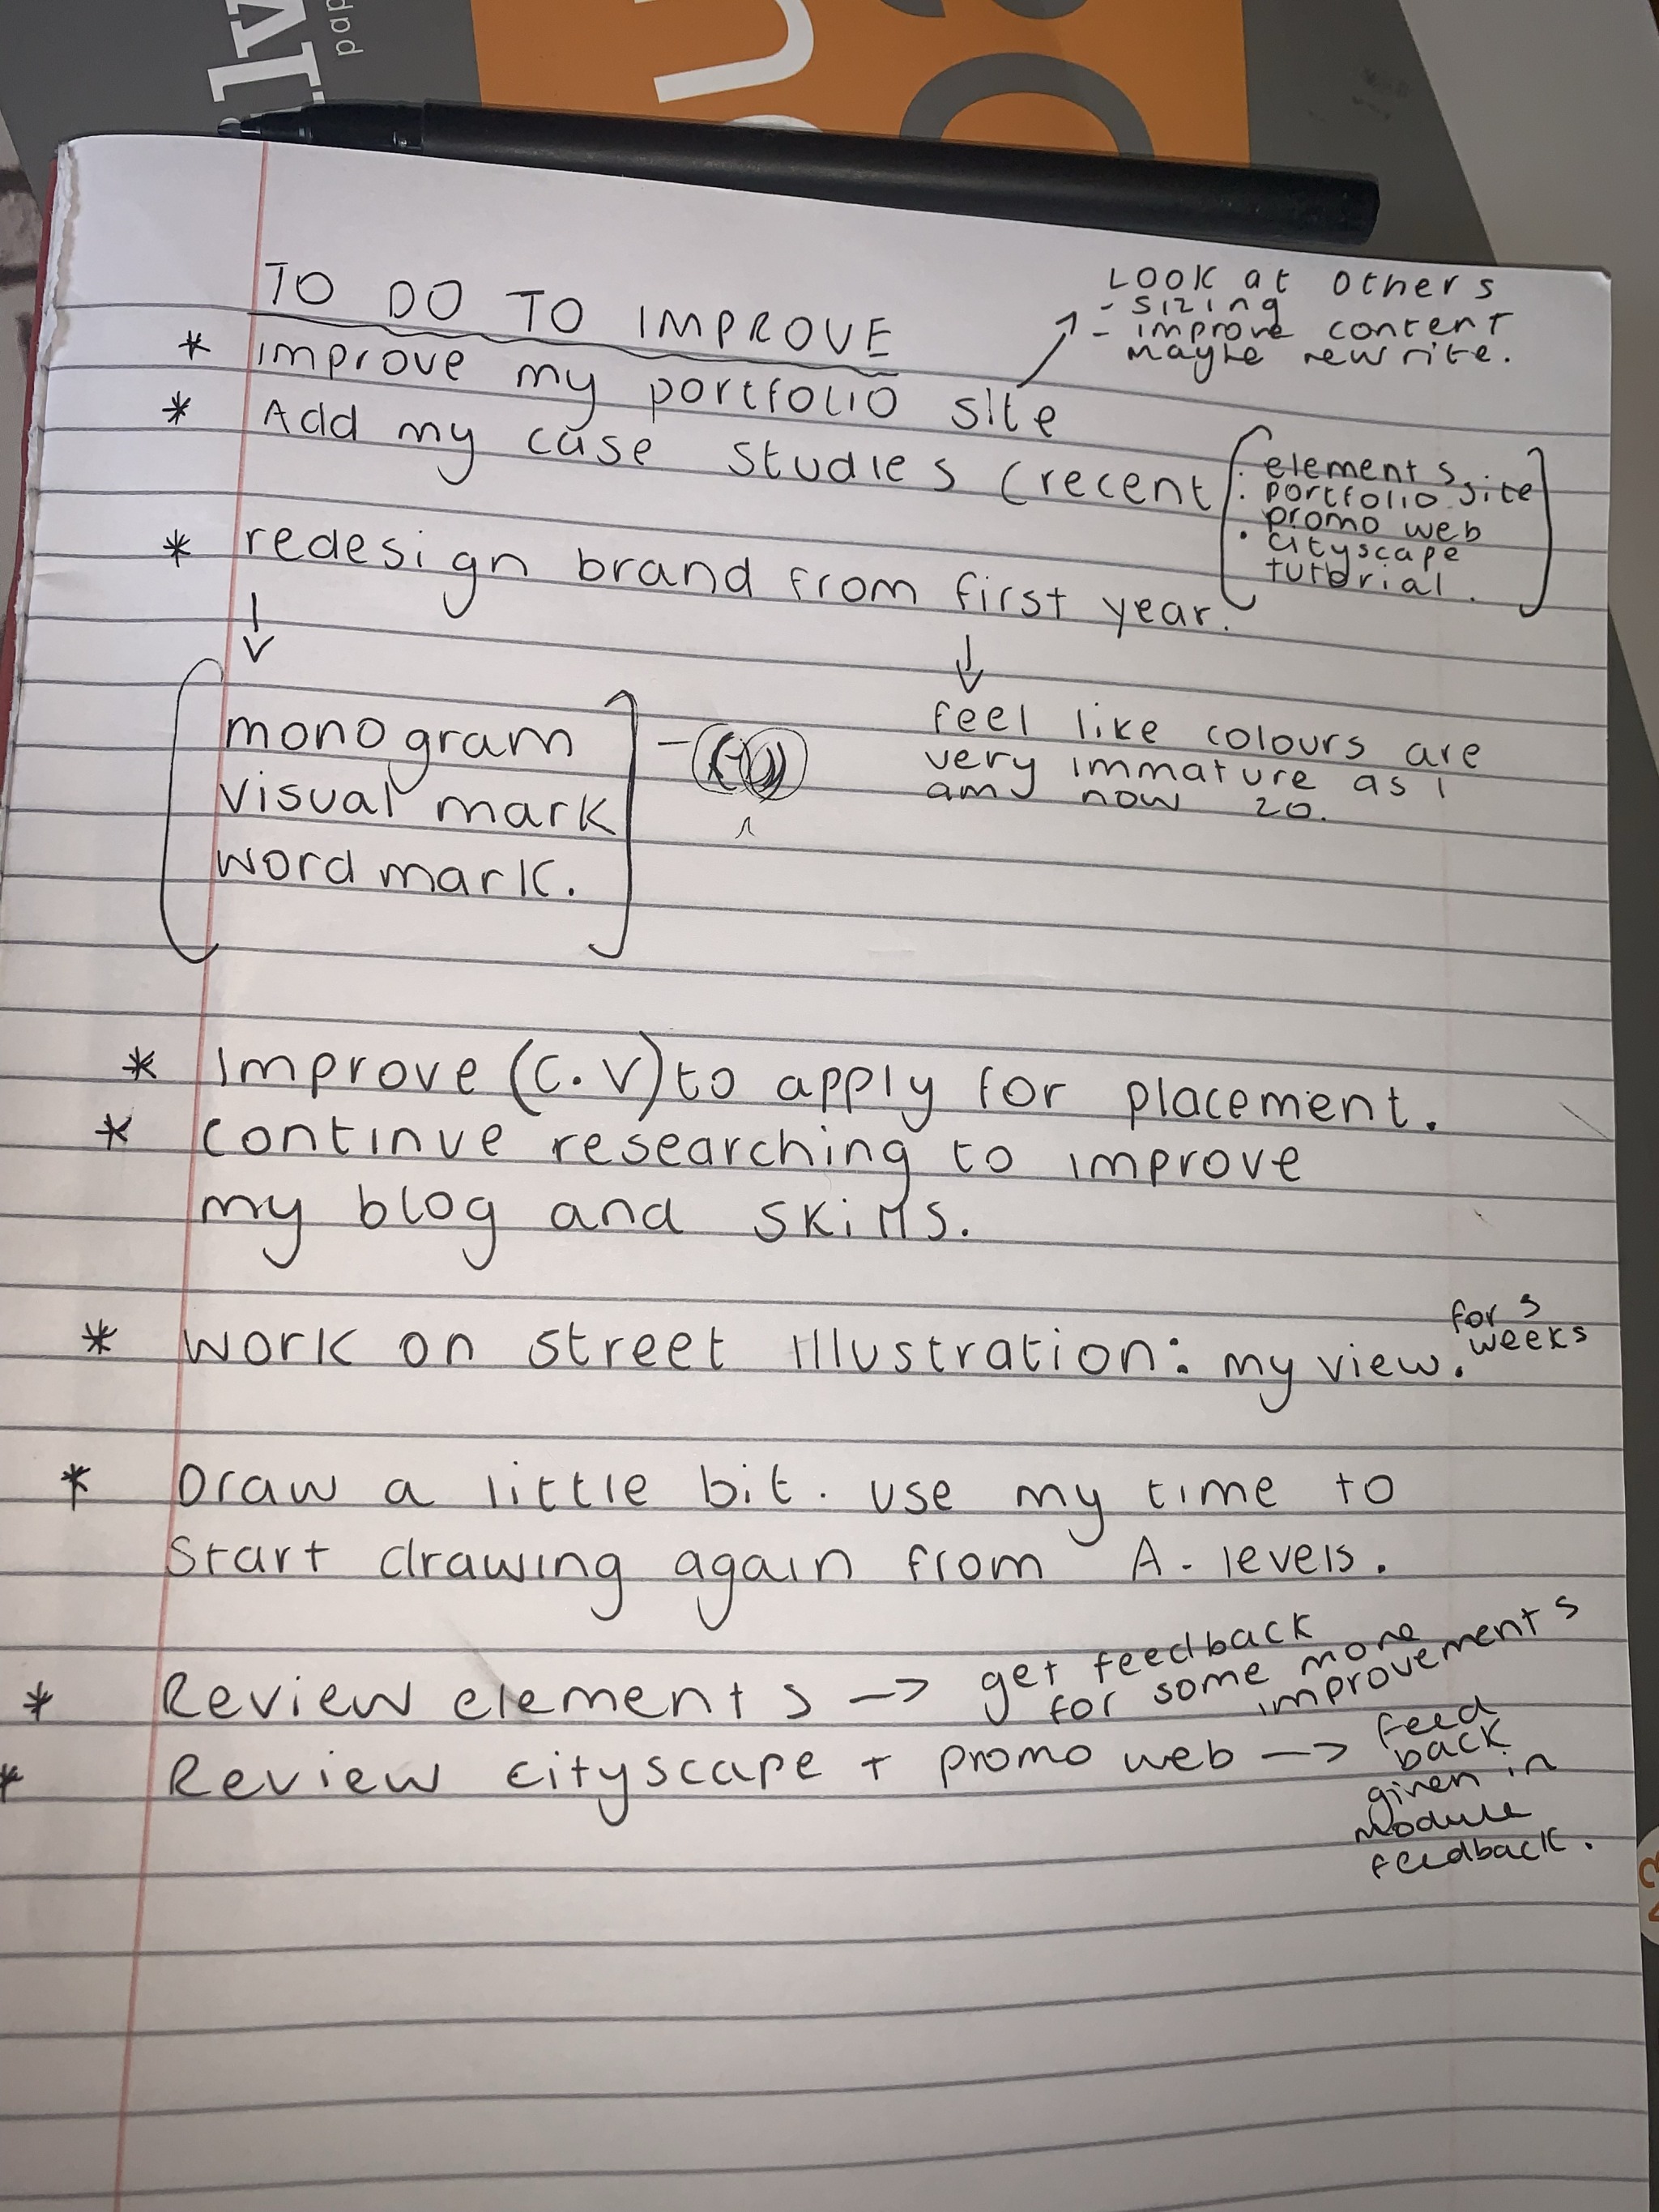 TO DO TO IMPROVE
* improve my portfolio site
Look at others
- sizing
- improve content
maybe rewrite.
* Add my case studies (recent
. elements
. portfolio site
promo web
. cityscape
tutorial.
* redesign brand from first year.
monogram
visual mark
word mark.
feel like colours are
very immature as I
am now 20.
* Improve (C.V) to apply for placement.
* continue researching to improve
my blog and skills.
* work on street illustration: my view.
for
weeks
* Draw a little bit. use my time to
start drawing again from A-levels.
* Review elements -> get feedback
for some more
improvements
* Review cityscape + promo web -> feed
back
given in
module
feedback.